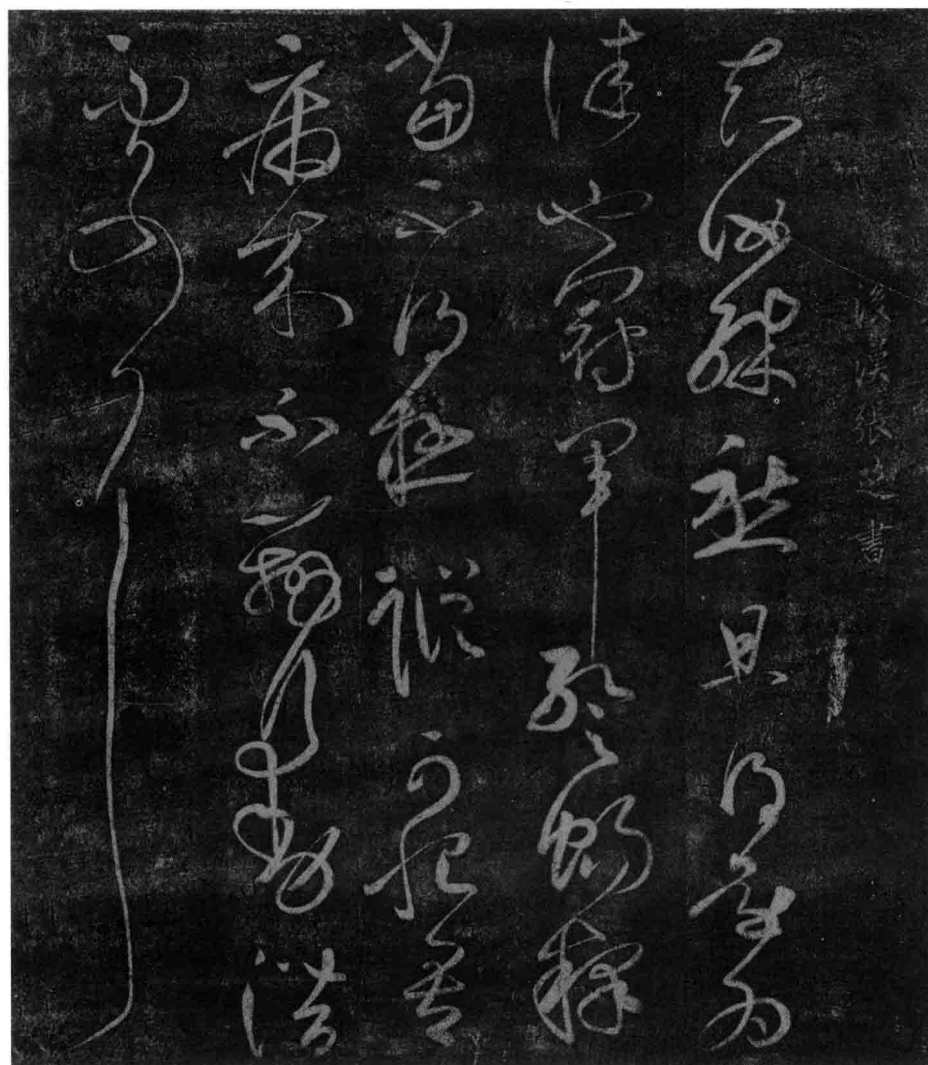 後漢張芝書
知汝殊愁且得還為
佳也冠軍暫暢釋
當不得極蹤可恨吾
病來不辨行動潛
不可耳